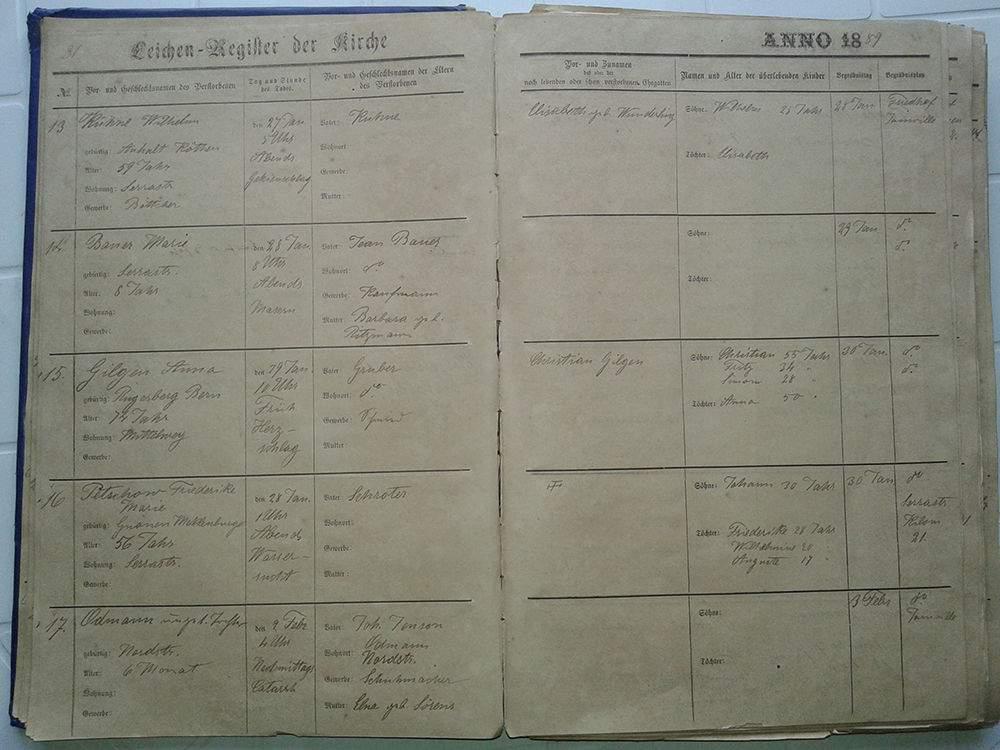 Leichen-Register der Kirche
ANNO 1889
№
Vor- und Geschlechtsnamen des Verstorbenen
Tag und Stunde
des Todes.
Vor- und Geschlechtsnamen der Eltern
des Verstorbenen
Vor- und Zunamen
des oder der
noch lebenden oder schon verstorbenen Ehegatten
Namen und Alter der überlebenden Kinder
Begräbnißtag
Begräbnißplatz
13
Kühne Wilhelm
gebürtig: Anhalt Köthen
Alter: 59 Jahr
Wohnung: Serrastr
Gewerbe: Böttcher
den 27 Jan.
5 Uhr
Abends
Gehirnschlag
Vater: Kühne
Wohnort:
Gewerbe:
Mutter:
Elisabeth geb.
Söhne: Wilhelm 25 Jahr
Töchter: Elisabeth
28 Jan
Friedhof
Joinville
14.
Bauer Marie
gebürtig: Serrastr.
Alter: 8 Jahr
Wohnung:
Gewerbe:
den 28 Jan.
8 Uhr
Abends
Masern
Vater: Jean Bauer
Wohnort: do
Gewerbe: Kaufmann
Mutter: Barbara geb.
Ritzmann
Söhne:
Töchter:
29 Jan
do
do
15.
Gilgen Anna
gebürtig: Bern
Alter: 72 Jahr
Wohnung: Mittelweg
Gewerbe:
den 29 Jan.
10 Uhr
Früh
Herz-
schlag
Vater: Gruber
Wohnort: do
Gewerbe:
Mutter:
Christian Gilgen
Söhne: Christian 55 Jahr
Fritz 34 "
Simon 28 "
Töchter: Anna 50 "
30 Jan.
do
do
16
Petschow Friederike
Marie
gebürtig: Meklenburg
Alter: 56 Jahr
Wohnung: Serrastr.
Gewerbe:
den 28 Jan.
1 Uhr
Abends
Wasser-
sucht
Vater: Schröter
Wohnort:
Gewerbe:
Mutter:
Söhne: Johann 30 Jahr
Töchter: Friederike 28 Jahr
Wilhelmine 20 "
Auguste 17
30 Jan
do
Serrastr
Kilom
21.
17.
Odmann ungt. Tochter
gebürtig: Nordstr.
Alter: 6 Monat
Wohnung:
Gewerbe:
den 2 Feb.
4 Uhr
Nachmittags
Catarrh
Vater: Joh. Jenson
Odmann
Wohnort: Nordstr.
Gewerbe: Schuhmacher
Mutter: Elna geb. Sörens
Söhne:
Töchter:
3 Febr
do
Joinville